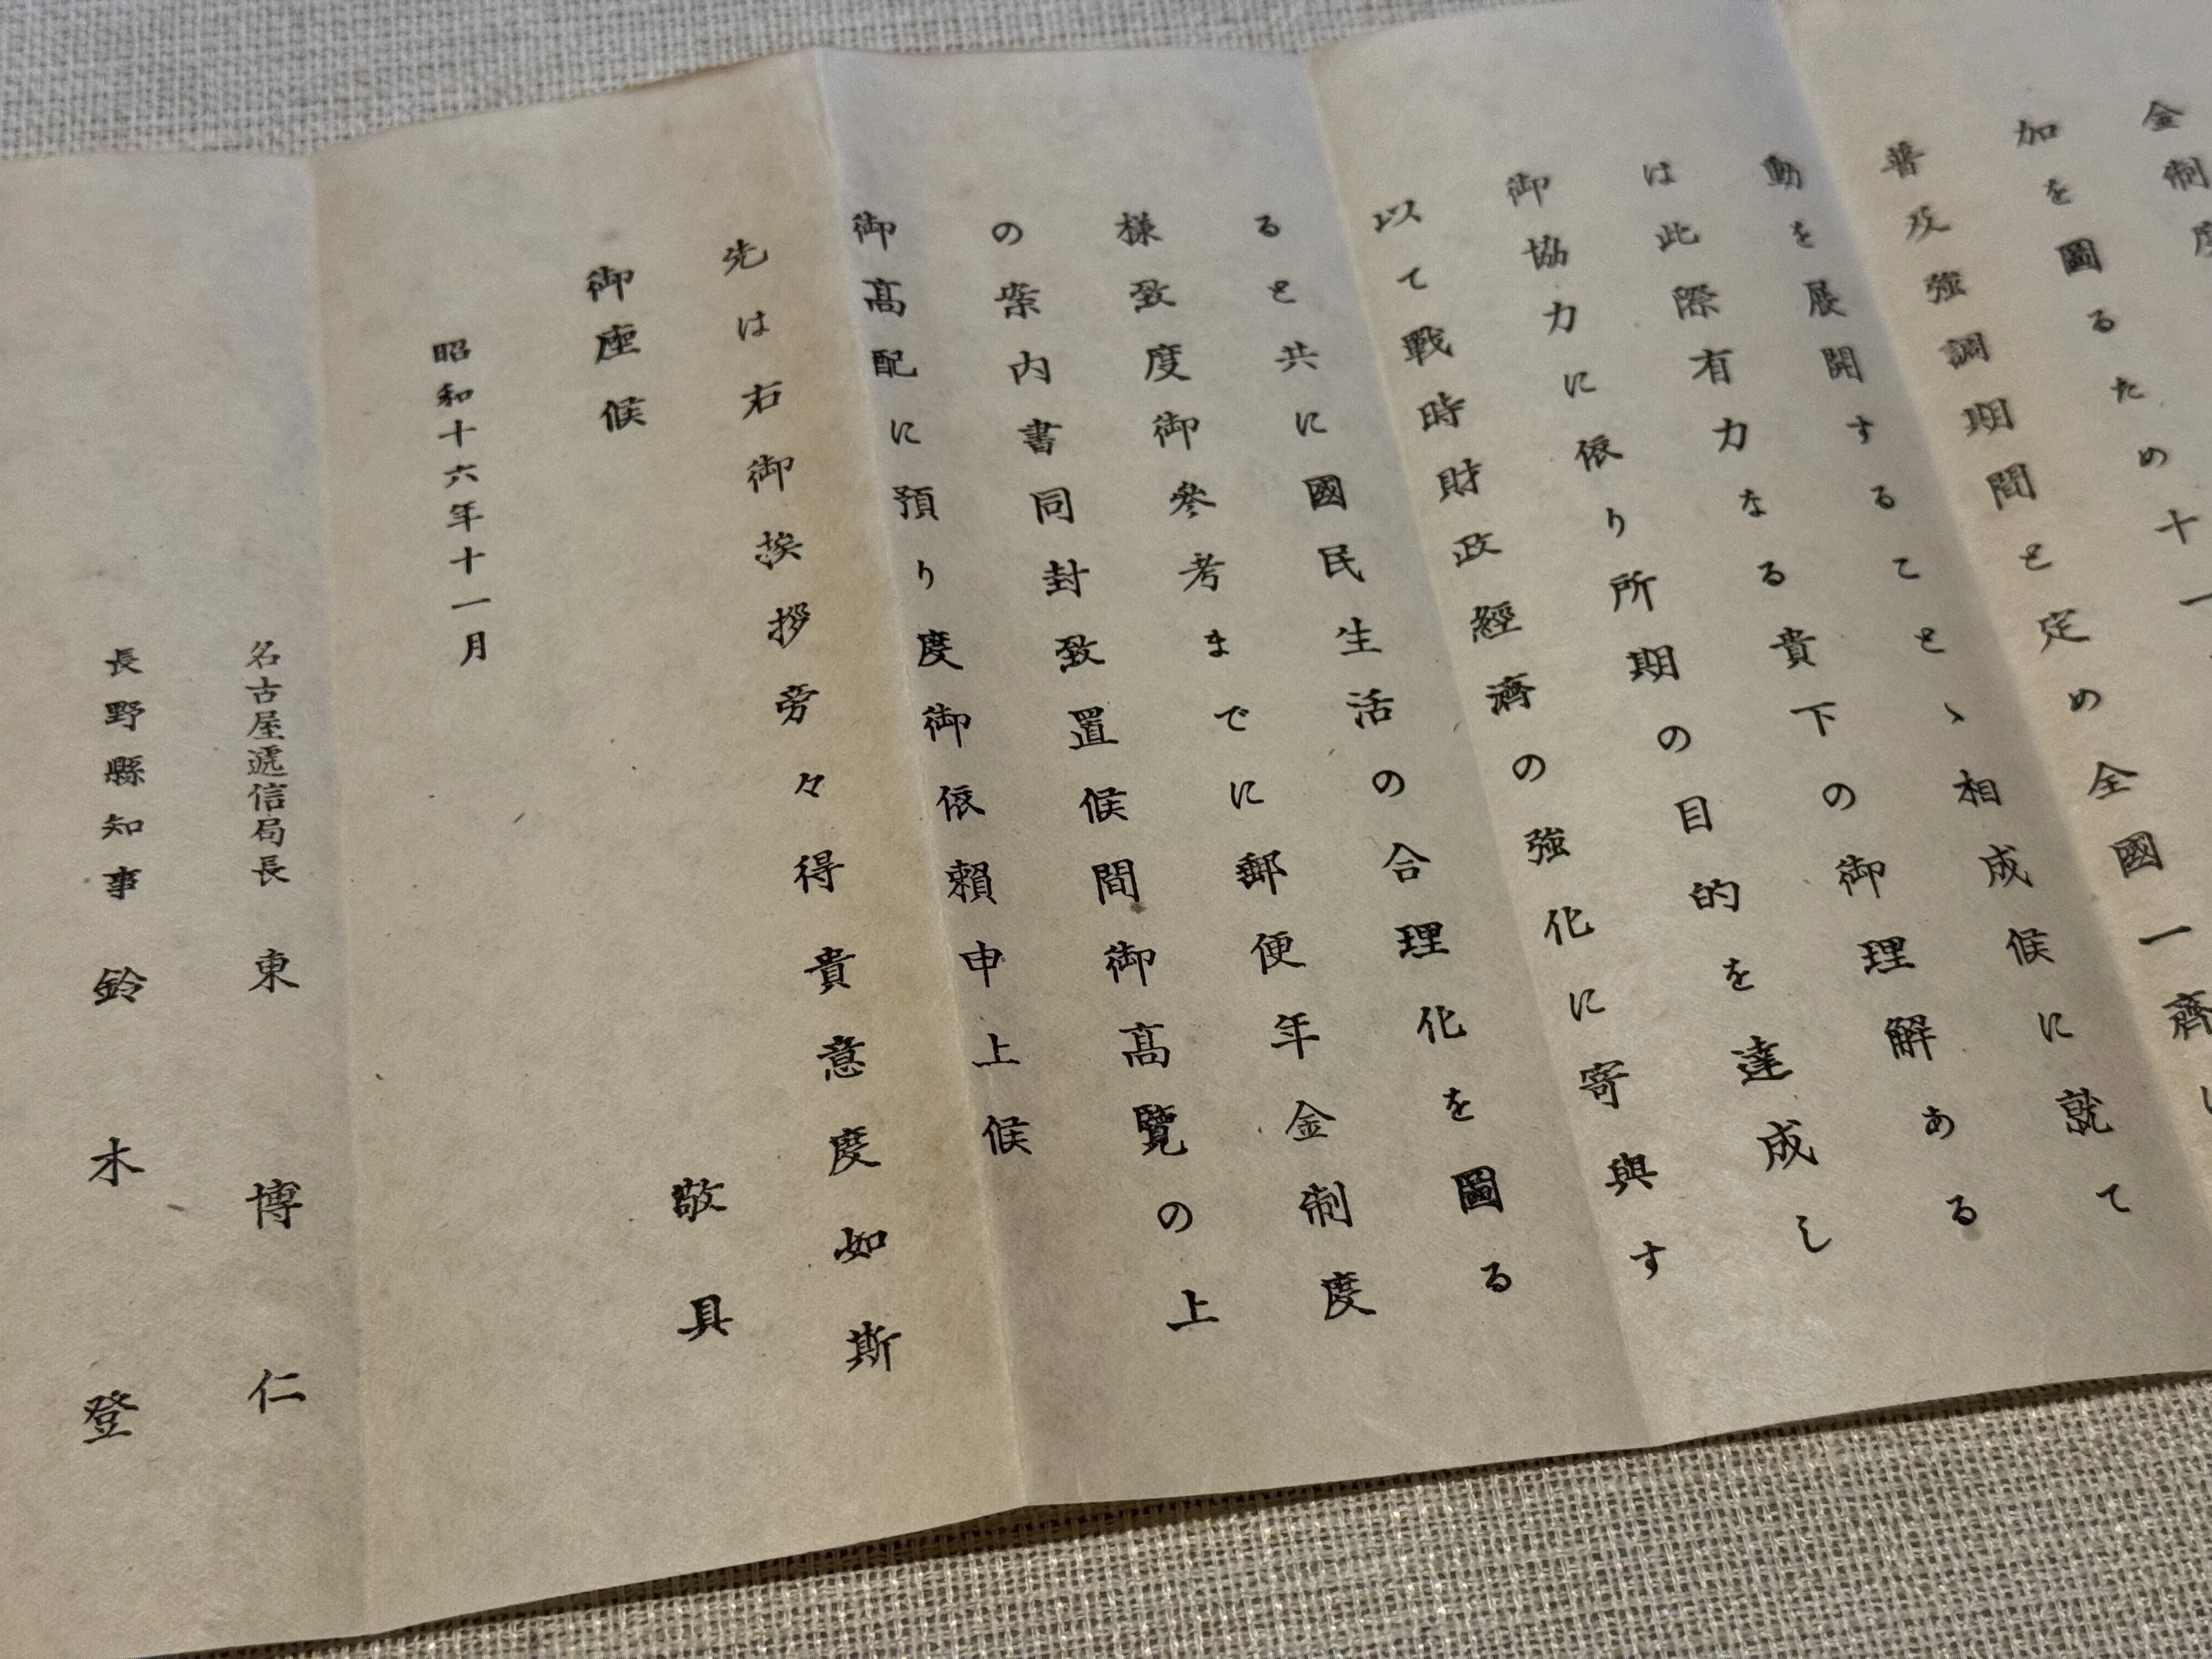 金制度
加を圖るため十一
普及強調期間と定め全國一齊
動を展開することゝ相成候に就て
は此際有力なる貴下の御理解ある
御協力に依り所期の目的を達成し
以て戰時財政經濟の強化に寄與す
ると共に國民生活の合理化を圖る
樣致度御參考までに郵便年金制度
の案内書同封致置候間御高覽の上
御高配に預り度御依賴申上候
先は右御挨拶旁々得貴意度如斯
御座候
敬具
昭和十六年十一月
名古屋遞信局長 東 博仁
長野縣知事 鈴木 登